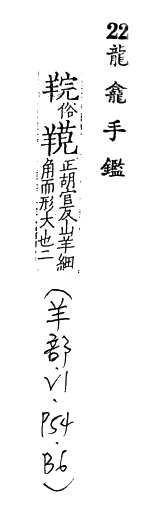 22龍龕手鑑
羦俗羱正胡官反山羊細角而形大也二
(羊部.V1.P54.B6)